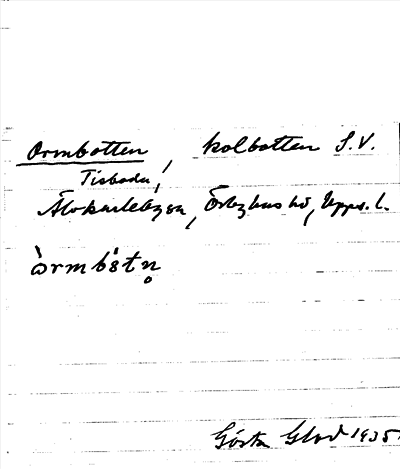 Ormbotten, kolbotten S.V.
Tisboda,
Älvkarleby sn, Örbyhus hd, Upps. l.
òrmbȯ́tn̥
Gösta 1935